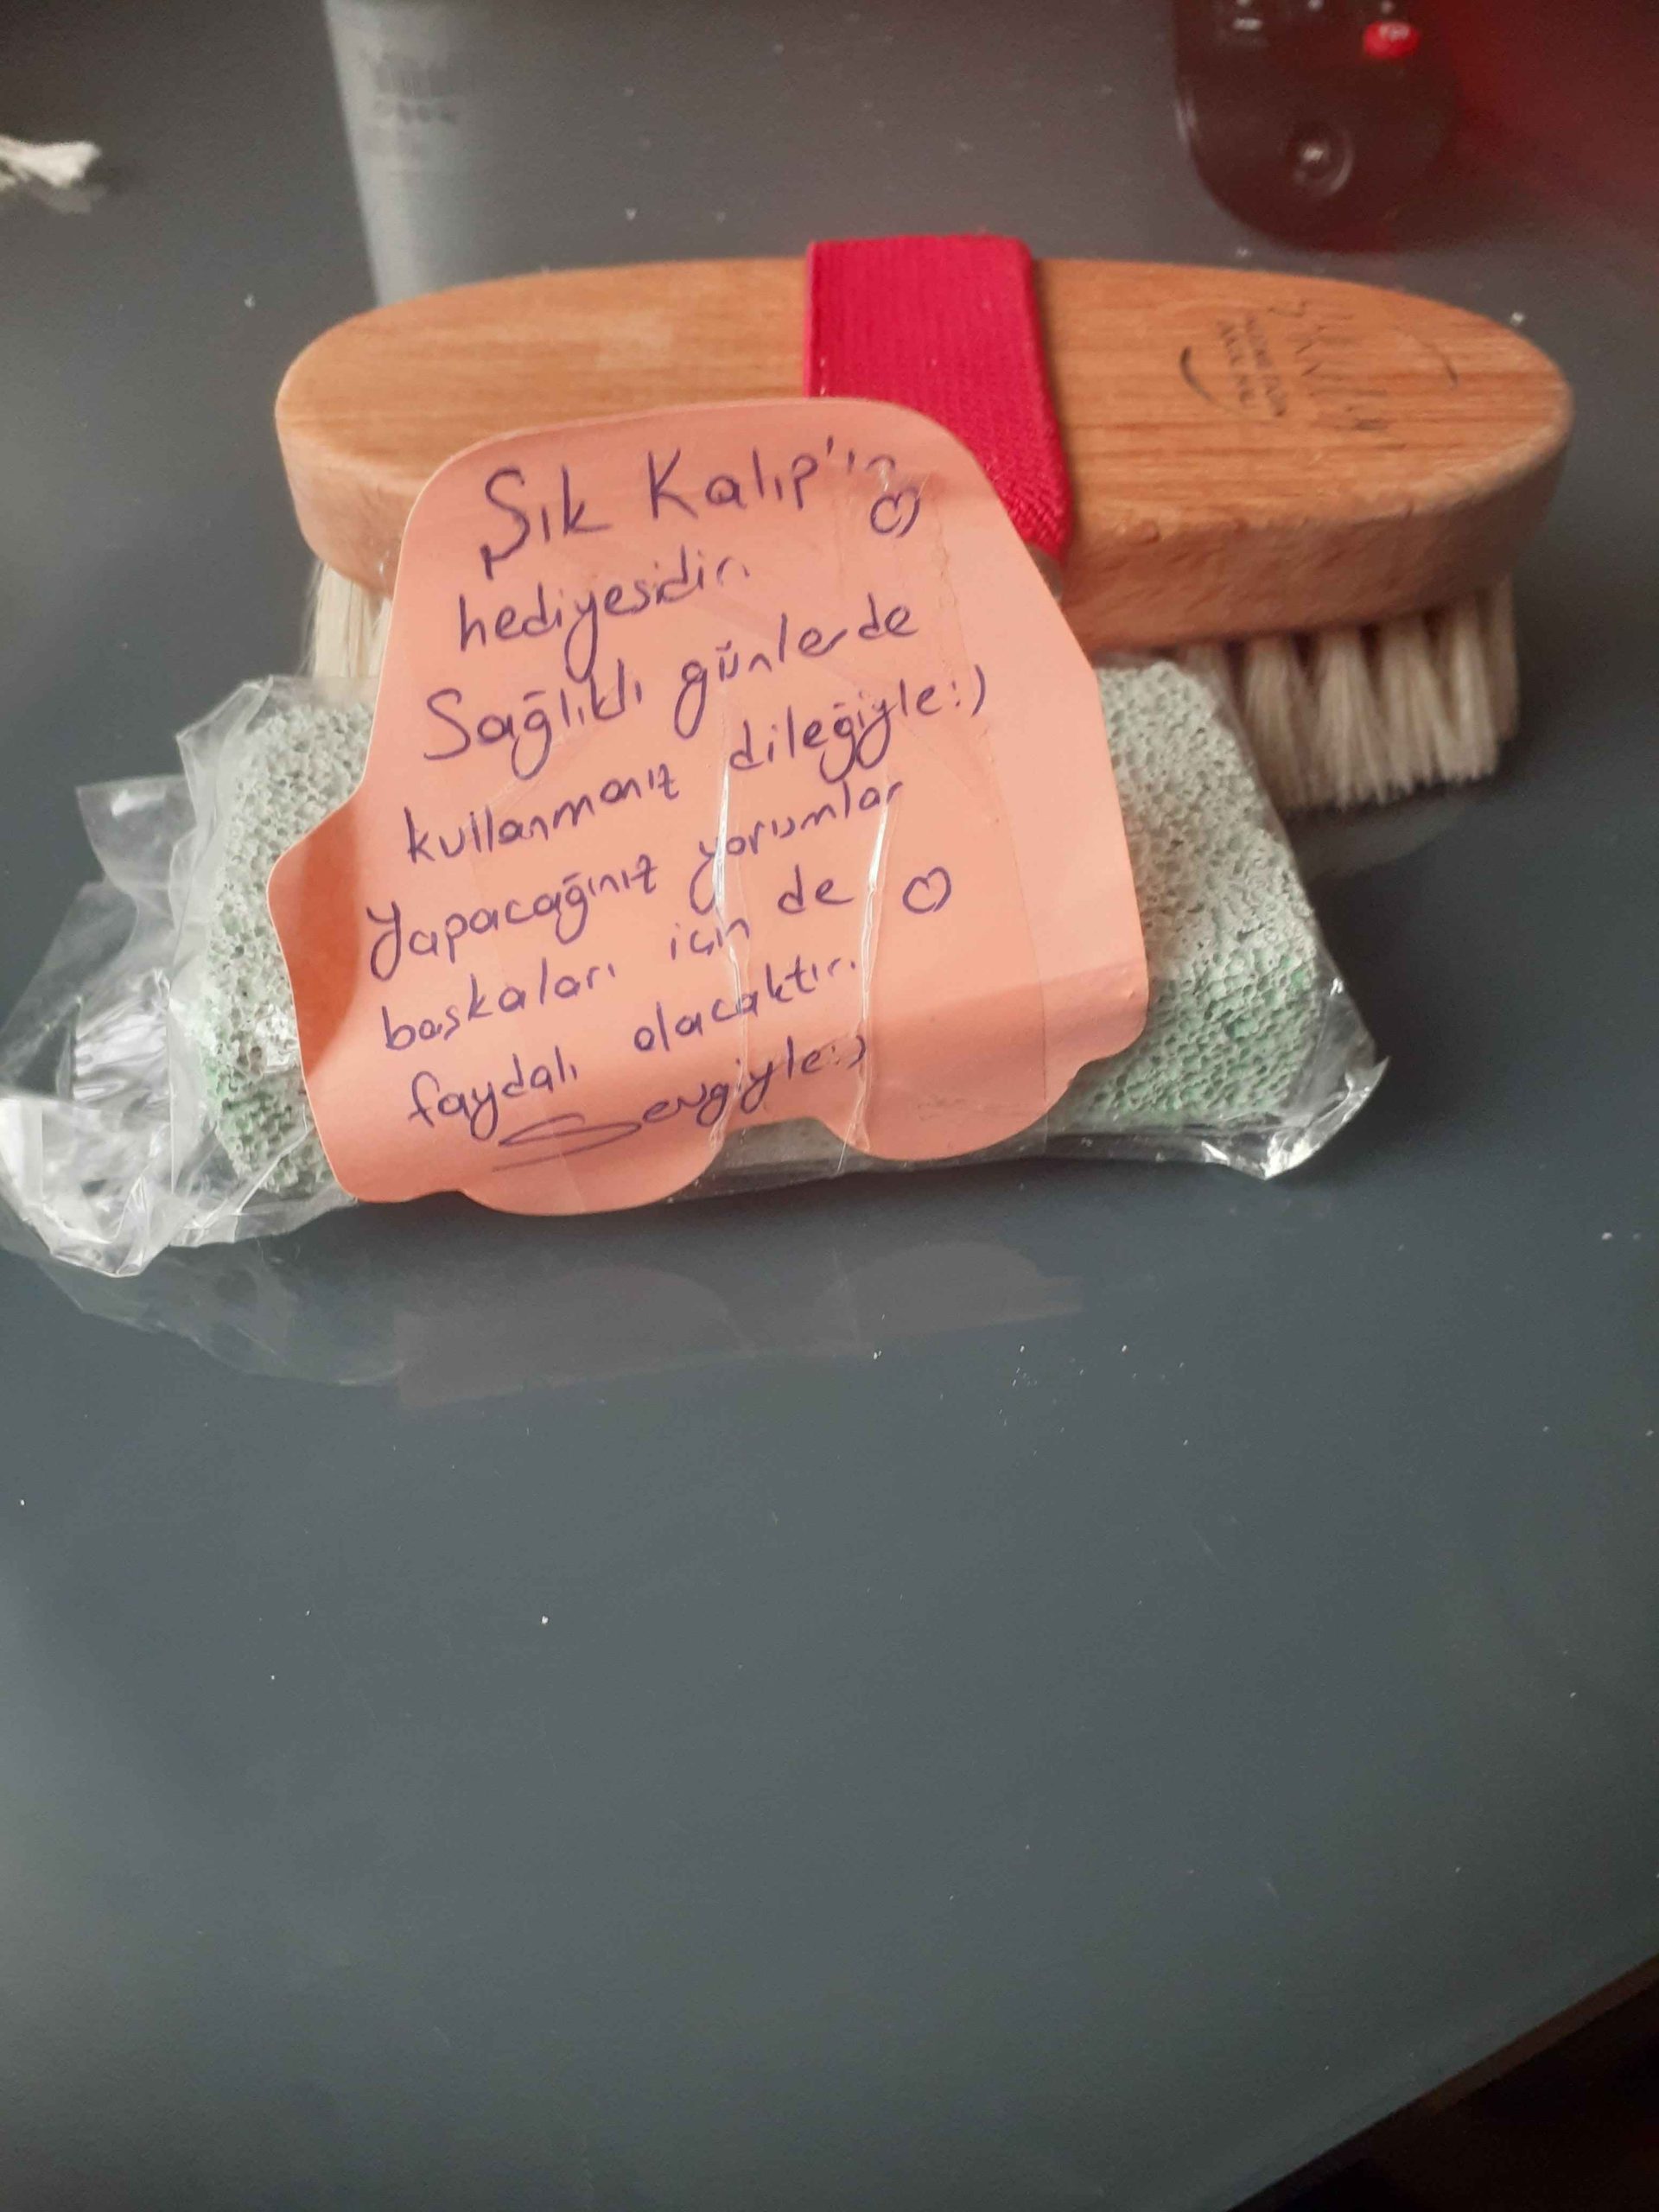 Şık Kalıp'ın
hediyesidir.
Sağlıklı günlerde
kullanmanız dileğiyle:)
Yapacağınız yorumlar
başkaları için de
faydalı olacaktır.
Sevgiyle:)